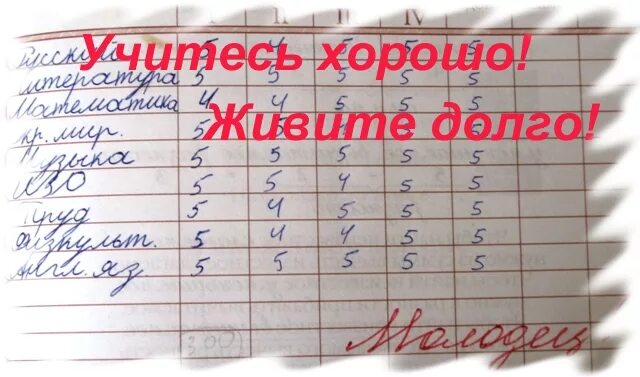 I II III IV
Учитесь хорошо!
Русский 5 4 5 5 5
литература 5 5 5 5 5
Математика 4 4 5 5 5
Живите долго!
кр. мир. 5
Музыка 5 5 5 5 5
ИЗО 5 5 4 5 5
Труд 5 4 5 5 5
Физкульт. 5 4 4 5 5
Англ. яз 5 5 5 5 5
Молодец